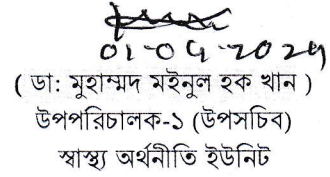 01-04-2024
( ডা: মুহাম্মদ মইনুল হক খান )
উপপরিচালক-১ (উপসচিব)
স্বাস্থ্য অর্থনীতি ইউনিট